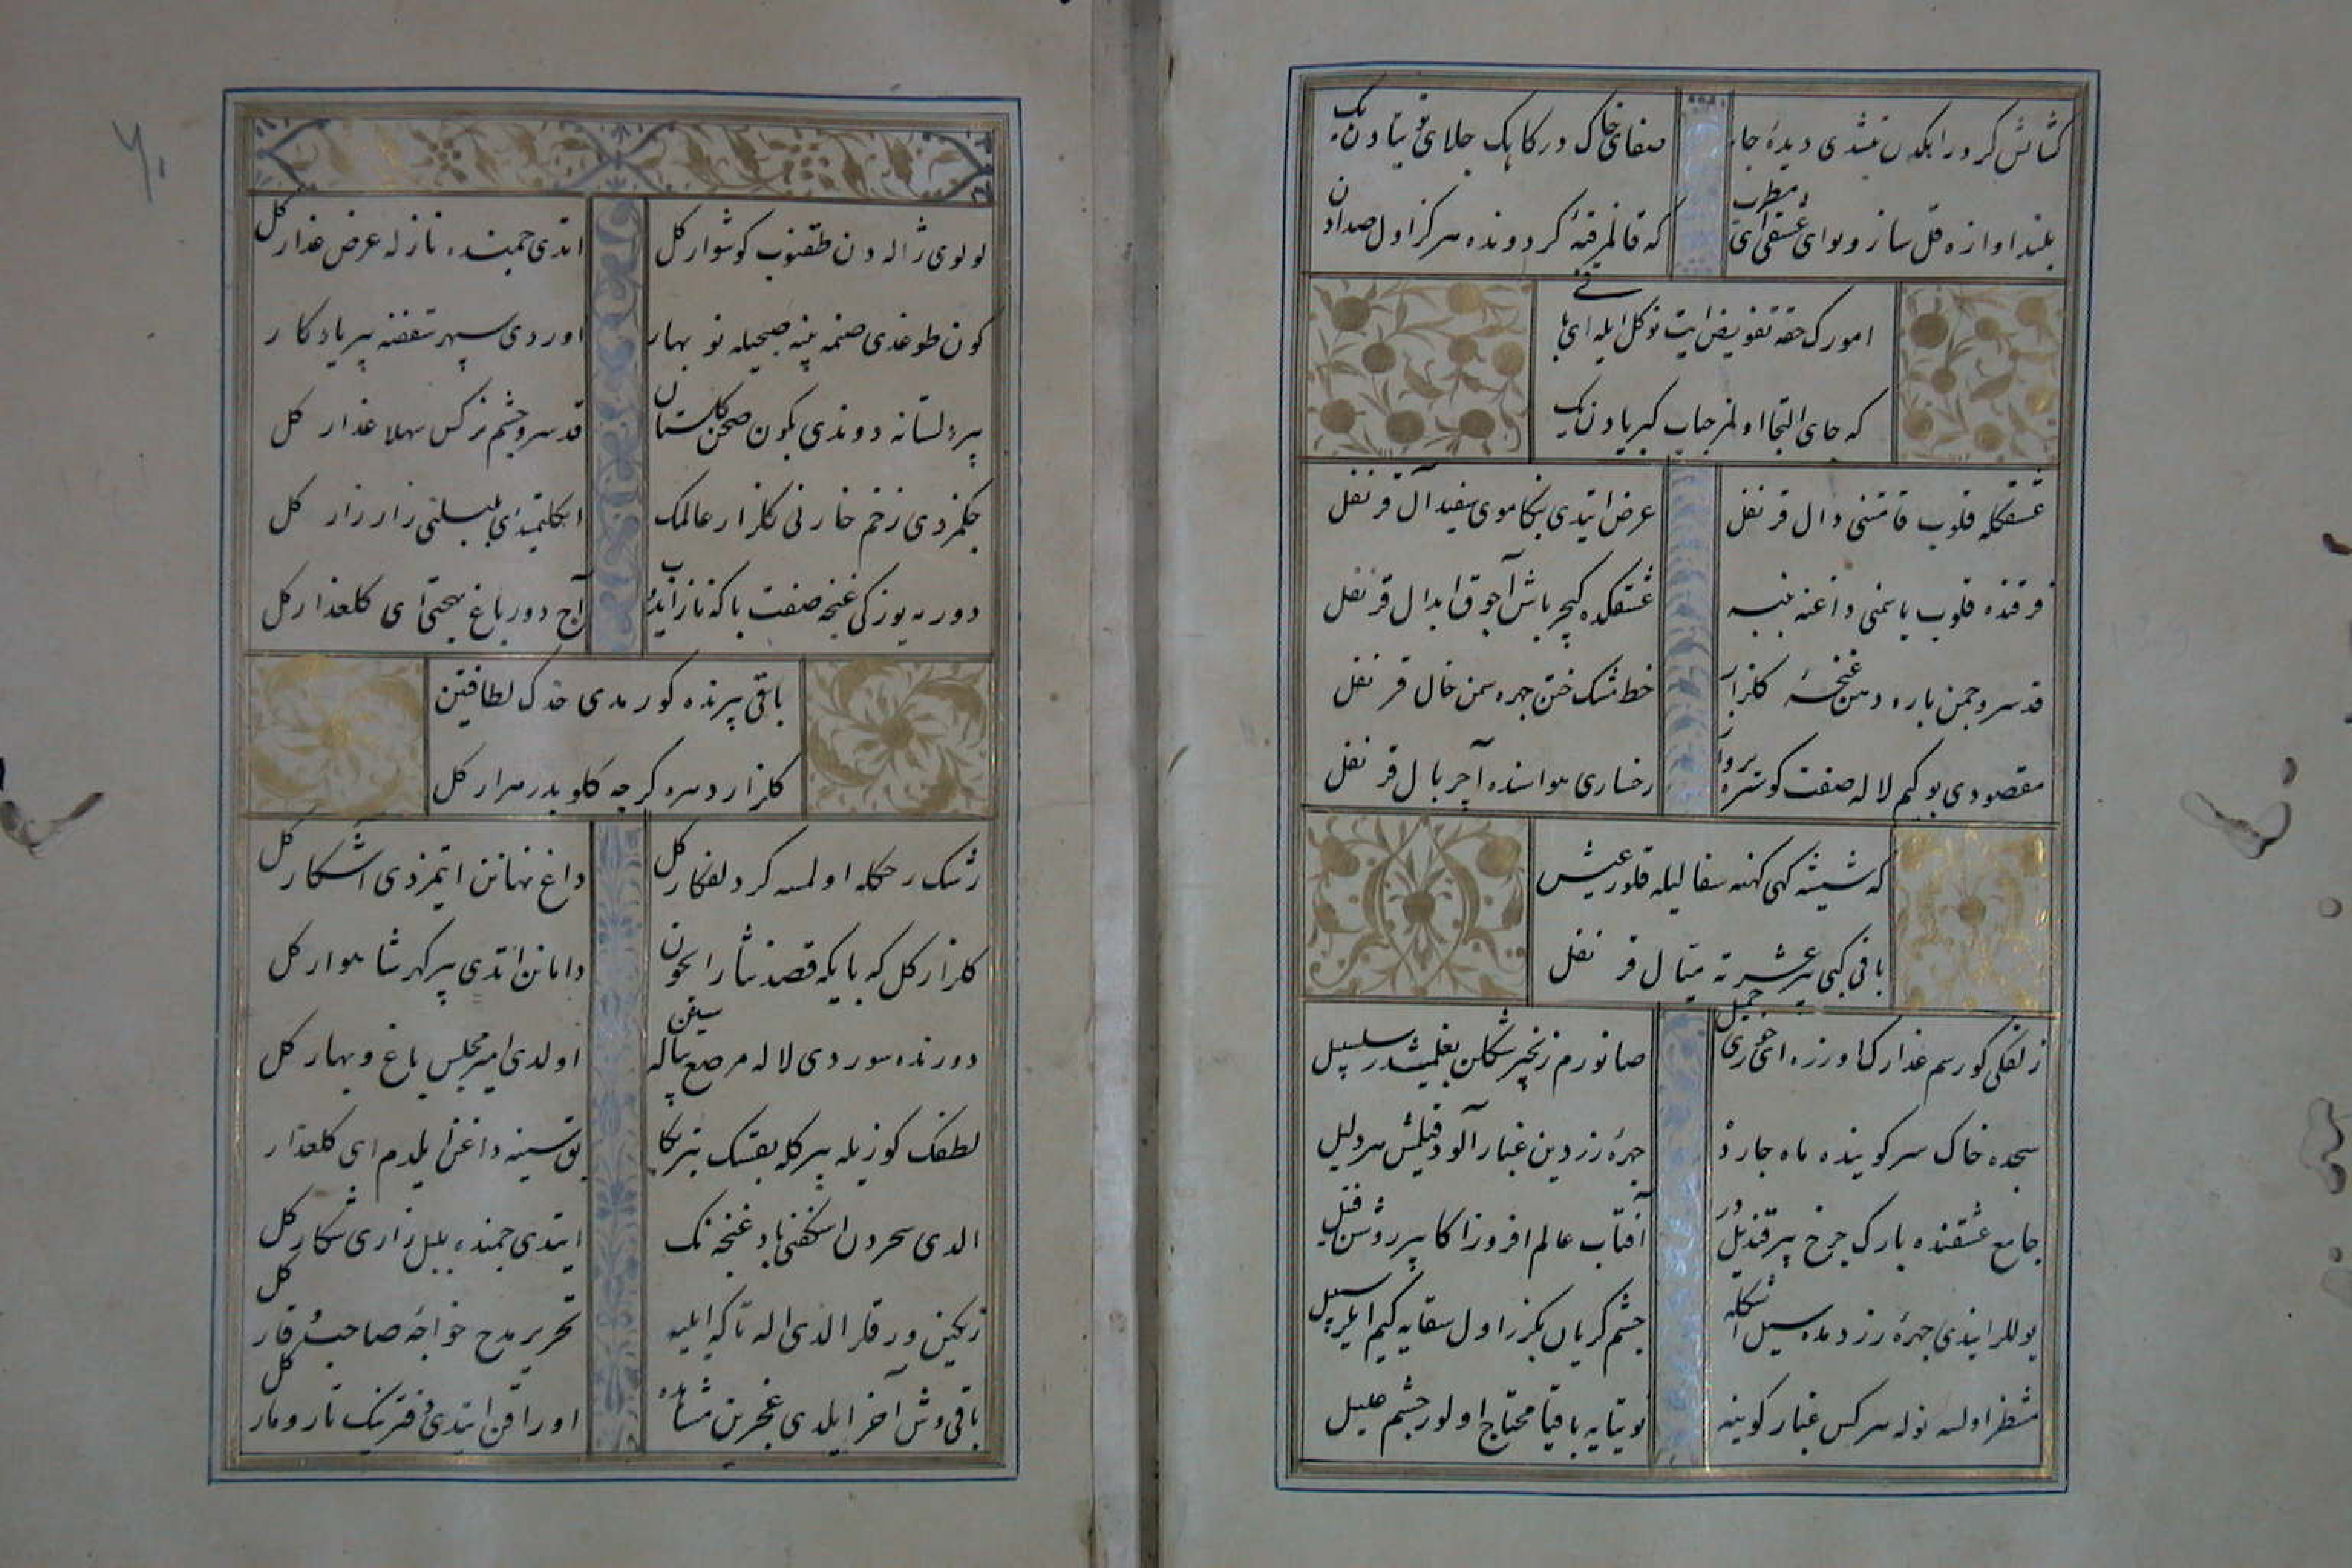 صفای خاک درکاهک جلای توتیادن یک
بلند اوازه قل ساز و نوای عشقی ای مطرب
که قالمز قبهٔ کردونده هرکز اول صدادن
امورک حقه تفویض ایت توکل ایله ای باقی
که جای التجا اولمز جناب کبریادن یک
عشقکله قلوب قامتنی دال قرنفل
عرض ایتدی بکا موی سفید آل قرنفل
فرقنده قلوب یاسمنی داغنه پنبه
عشقکده کچر باش آچوق ابدال قرنفل
قد سرو چمن یاره دهن غنچهٔ کلزار
خط مشک ختن چهره سمن خال قرنفل
مقصودی بو کیم لاله صفت کوستره پروا
رخساری هواسنده آچر بال قرنفل
که شیشه کهی کهنه سفالیله قلور عیش
باقی کبی بر عشرته میال قرنفل
زلفکی کورسم عذارک اوزره ای حوری جمیل
صانورم زنجیر شکلن بغلمیشدر سلسبیل
سجده خاک سر کوینده ماه چارده
چهرهٔ زردین غبار آلود قیلمش هر دلیل
جامع عشقنده یارک چرخ بر قندیلدر
آفتاب عالم افروز اکا بر روشن فتیل
یوللر ایتدی چهرهٔ زردمده سیل اشکله
چشم کریان بکزر اول سقایه کیم ایلر سبیل
منتظر اولسه نوله هرکس غبار کوینه
توتیایه باقیا محتاج اولور چشم علیل
لولوی ژاله دن طقنوب کوشوار کل
اتدی چمنده نازله عرض عذار کل
کون طوغدی صنمه پنبه صبحیله نو بهار
اوردی سپهر سقفنه بر یادکار
بر دلستانه دوندی بکون صحن کلستان
قد سرو چشم نرکس شهلا عذار کل
چکمزدی زخم خارنی کلزار عالمک
اکلتمیدی بلبلنی زار زار کل
دور یوزکی غنچه صفت باکه ناز ایدوب
آچ دور باغ بهجتی ای کلعذار کل
باقی برنده کورمدی حدک لطافتن
کلزار دهره کرچه کلوبدر هزار کل
رشک رخکله اولمسه کر دلفکار کل
داغ نهانن اتمزدی آشکار کل
کلزار کل که پایکه قصد نثار ایچون
دامانن اتدی پر کهر شاهوار کل
دورنده سوردی لاله مرصع پیاله سین
اولدی امیر مجلس باغ و بهار کل
لطفک کوزیله بر کله بقسک بنر بکا
یق سینه داغن ایلدم ای کلعذار
الدی سحر دن اسکفنی باد غنچه نک
ایتدی چمنده بلبل زاری شکار کل
رنکین ورقلر الدی اله تا که ایلیه
تحریر مدح خواجهٔ صاحب وقار کل
باقی وش آخر ایلدی عجزین مشاهده
اوراقن ایتدی دفترینک تارومار کل